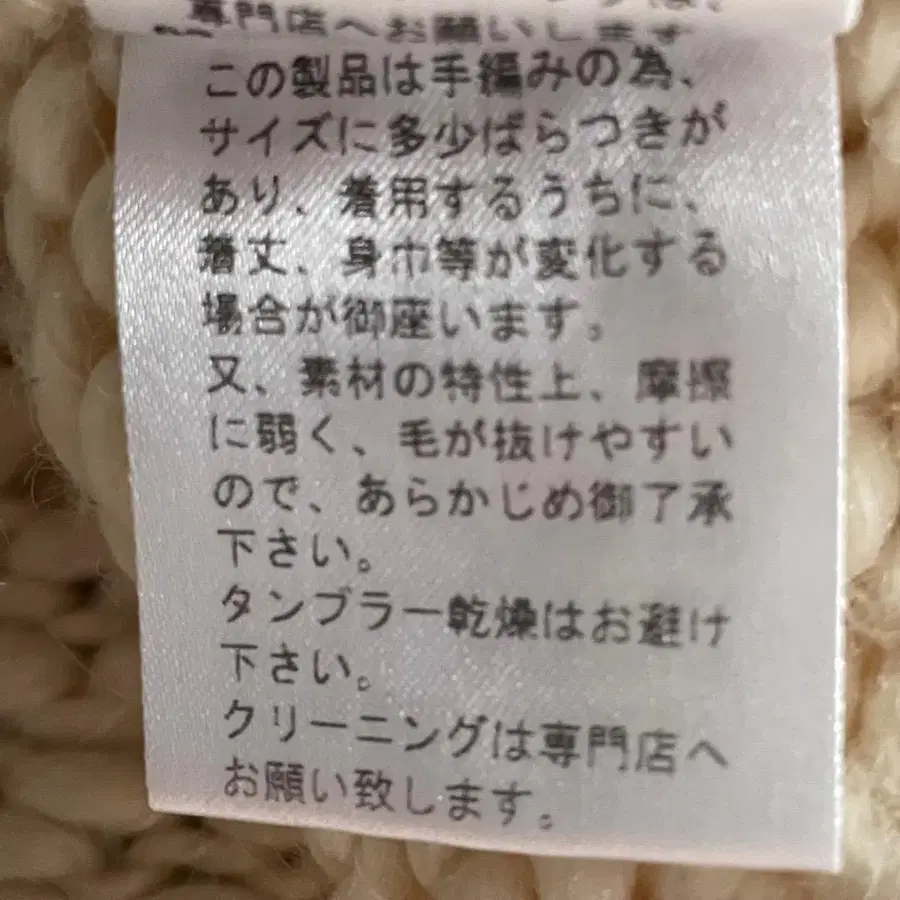 専門店へお願いします
この製品は手編みの為、
サイズに多少ばらつきが
あり、着用するうちに、
着丈、身巾等が変化する
場合が御座います。
又、素材の特性上、摩擦
に弱く、毛が抜けやすい
ので、あらかじめ御了承
下さい。
タンブラー乾燥はお避け
下さい。
クリーニングは専門店へ
お願い致します。